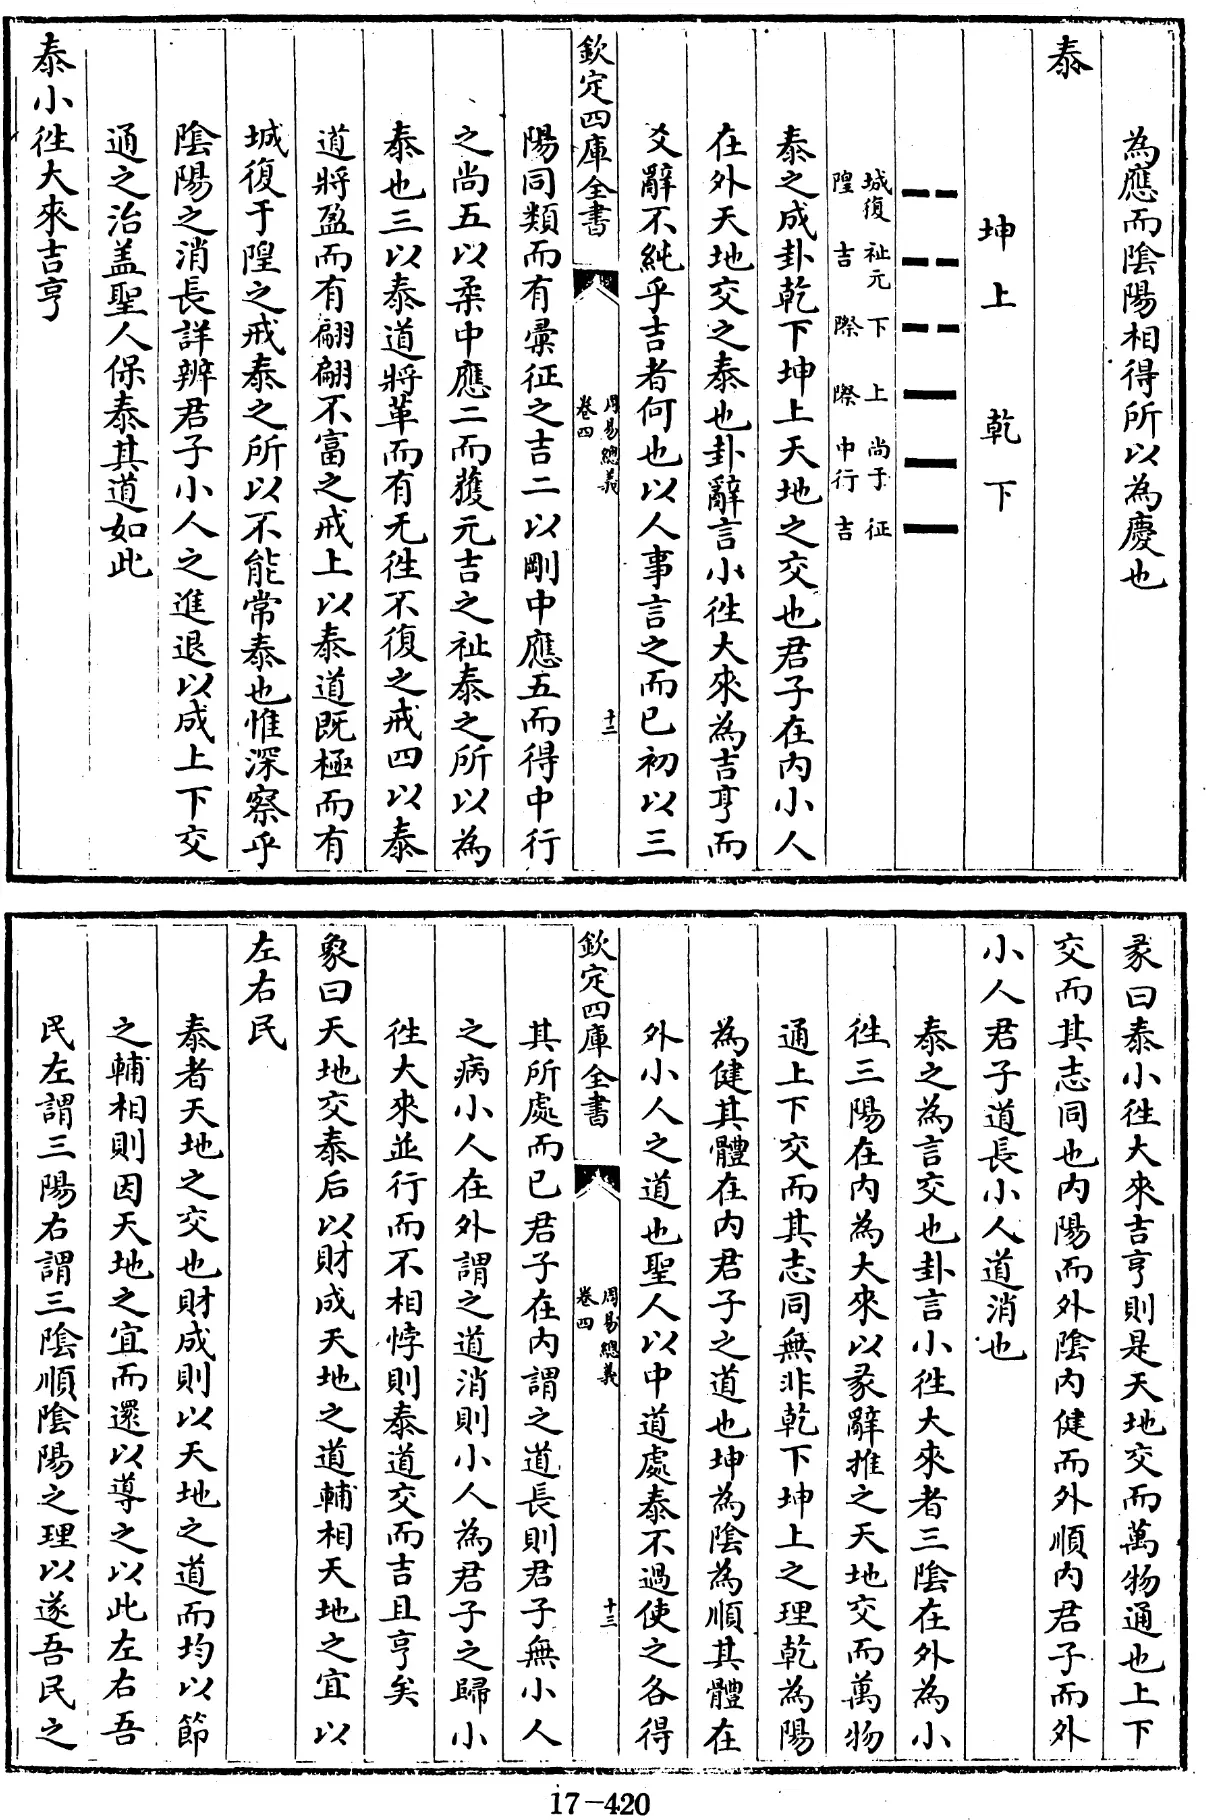 為應而陰陽相得所以為慶也
泰
坤上　乾下
城復　祉元　下　上　尚于　征
隍　吉　際　際　中行　吉
泰之成卦乾下坤上天地之交也君子在内小人
在外天地交之泰也卦辭言小徃大來為吉亨而
爻辭不純乎吉者何也以人事言之而已初以三
欽定四庫全書
周易總義
卷四
十二
陽同類而有彚征之吉二以剛中應五而得中行
之尚五以柔中應二而獲元吉之祉泰之所以為
泰也三以泰道將革而有无徃不復之戒四以泰
道將盈而有翩翩不富之戒上以泰道既極而有
城復于隍之戒泰之所以不能常泰也惟深察乎
陰陽之消長詳辨君子小人之進退以成上下交
通之治盖聖人保泰其道如此
泰小徃大來吉亨
彖曰泰小徃大來吉亨則是天地交而萬物通也上下
交而其志同也内陽而外陰内健而外順内君子而外
小人君子道長小人道消也
泰之為言交也卦言小徃大來者三陰在外為小
徃三陽在内為大來以彖辭推之天地交而萬物
通上下交而其志同無非乾下坤上之理乾為陽
為健其體在内君子之道也坤為陰為順其體在
外小人之道也聖人以中道處泰不過使之各得
欽定四庫全書
周易總義
卷四
十三
其所處而已君子在内謂之道長則君子無小人
之病小人在外謂之道消則小人為君子之歸小
徃大來並行而不相悖則泰道交而吉且亨矣
象曰天地交泰后以財成天地之道輔相天地之宜以
左右民
泰者天地之交也財成則以天地之道而均以節
之輔相則因天地之宜而還以導之以此左右吾
民左謂三陽右謂三陰順陰陽之理以遂吾民之
17-420